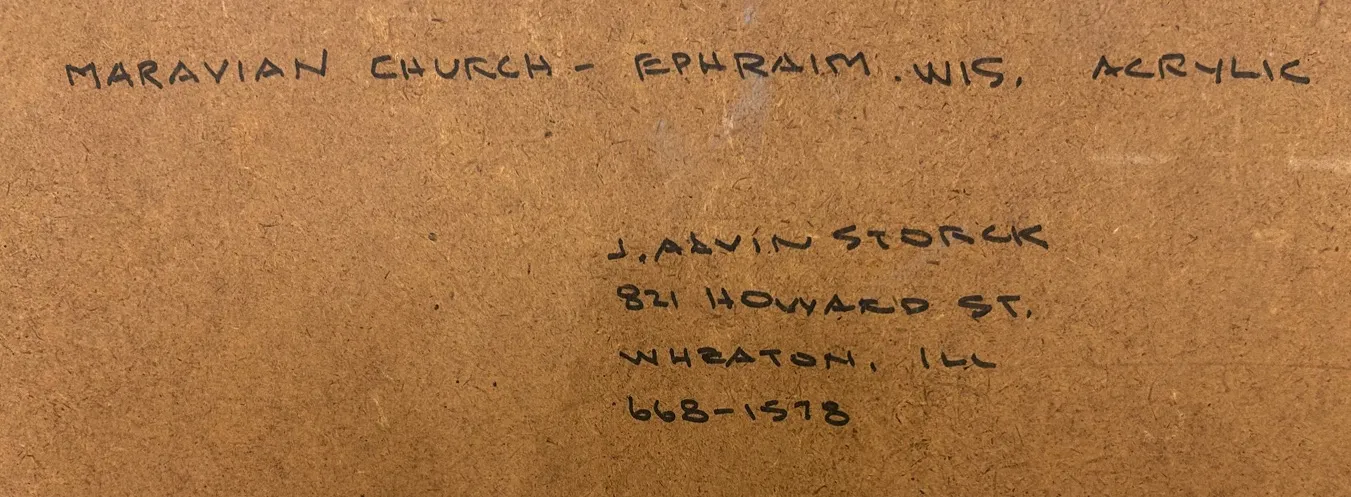 MARAVIAN CHURCH - EPHRAIM. WIS. ACRYLIC
J. ALVIN STORCK
821 HOWARD ST.
WHEATON, ILL
668-1578